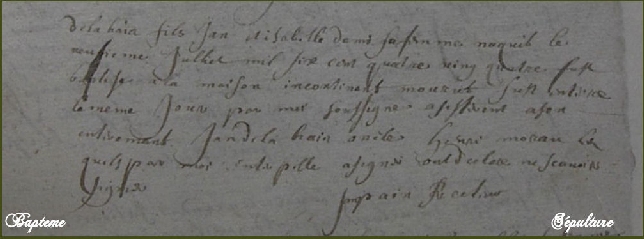 dela haie fils Jan et isabelle demi sa femme naquit le
neufieme Jullet mil six cens quatre ving quatre fust
batise a la maison incontinent mourut fust enterre
le meme Jour par moi soussigne asisterent a son
enterement Jan dela haie avec henri moreau les
quels par moi interpelle a signer ont declare ne scavoir
signer
Bapteme
Sépulture